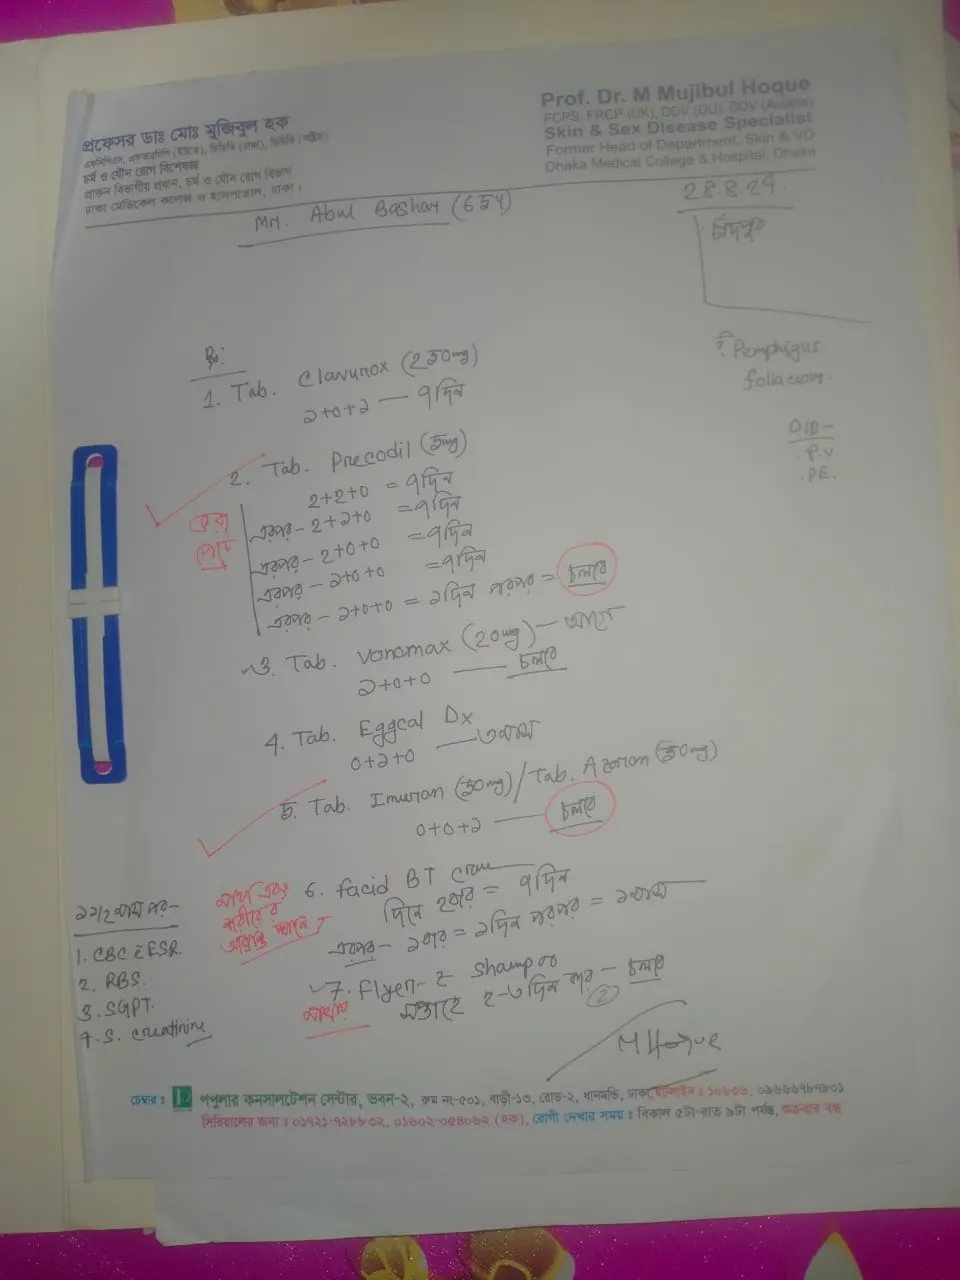 প্রফেসর ডাঃ মোঃ মুজিবুল হক
এফসিপিএস, এফআরসিপি (ইউকে), ডিডিভি (ঢাকা), ডিডিভি (অষ্ট্রিয়া)
চর্ম ও যৌন রোগ বিশেষজ্ঞ
প্রাক্তন বিভাগীয় প্রধান, চর্ম ও যৌন রোগ বিভাগ
ঢাকা মেডিকেল কলেজ ও হাসপাতাল, ঢাকা।
Prof. Dr. M Mujibul Hoque
FCPS, FRCP (UK), DDV (DU), DDV (Austria)
Skin & Sex Disease Specialist
Former Head of Department, Skin & VD
Dhaka Medical College & Hospital, Dhaka
Mr. Abul Bashar
28.8.24.
চাঁদপুর
? Pemphigus
foliaceous.
D/D-
. P.V
. PE.
Rx:
1. Tab. Clavunox (250mg)
১+০+১ — ৭দিন
2. Tab. Precodil (5mg)
2+2+0 = ৭দিন
এরপর - 2+১+0 = ৭দিন
এরপর - 2+0+0 = ৭দিন
এরপর - ১+0+0 = ৭দিন
এরপর - ১+0+0 = ১দিন পরপর = চলবে
ভরা
পেটে
3. Tab. Vonomax (20mg) - আগে
১+0+0 — চলবে
4. Tab. Eggcal Dx
0+১+0 — ৩মাস
5. Tab. Imuran (50mg)/Tab. Azoran (50mg)
0+0+১ — চলবে
6. Facid BT Cream
দিনে ২বার = ৭দিন
এরপর - ১বার = ১দিন পরপর = ১মাস
মাথা এবং
শরীরের
আক্রান্ত স্থানে
7. Flyen-Z Shampoo
সপ্তাহে ২-৩দিন - চলবে
মাথায়
(2)
MHoque
১১/২মাস পর-
1. CBC c̄ ESR.
2. RBS.
3. SGPT.
4. S. Creatinine
চেম্বার : পপুলার কনসালটেশন সেন্টার, ভবন-২, রুম নং-৫০১, বাড়ী-১৩, রোড-২, ধানমন্ডি, ঢাকা, হটলাইন : ১০৬৩৬, ০৯৬৬৬৭৮৭৮০১
সিরিয়ালের জন্য : ০১৭২১-৭২৮৮৩২, ০১৬০২-০৫৪০৬২ (হক), রোগী দেখার সময় : বিকাল ৫টা-রাত ৯টা পর্যন্ত, শুক্রবার বন্ধ